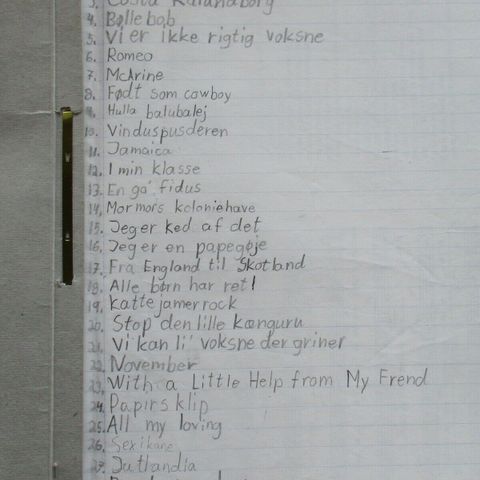 3. Costa Kalundborg
4. Bølle bob
5. Vi er ikke rigtig voksne
6. Romeo
7. McArine
8. Født som cowboy
9. Hulla balubalej
10. Vinduspusderen
11. Jamaica
12. I min klasse
13. En ga' fidus
14. Mormors koloniehave
15. Jeg er ked af det
16. Jeg er en papegøje
17. Fra England til Skotland
18. Alle børn har ret!
19. Kattejamerrock
20. Stop den lille kænguru
21. Vi kan li' voksne der griner
22. November
23. With a Little Help from My Frend
24. Papirsklip
25. All my loving
26. Sexikane
27. Jutlandia